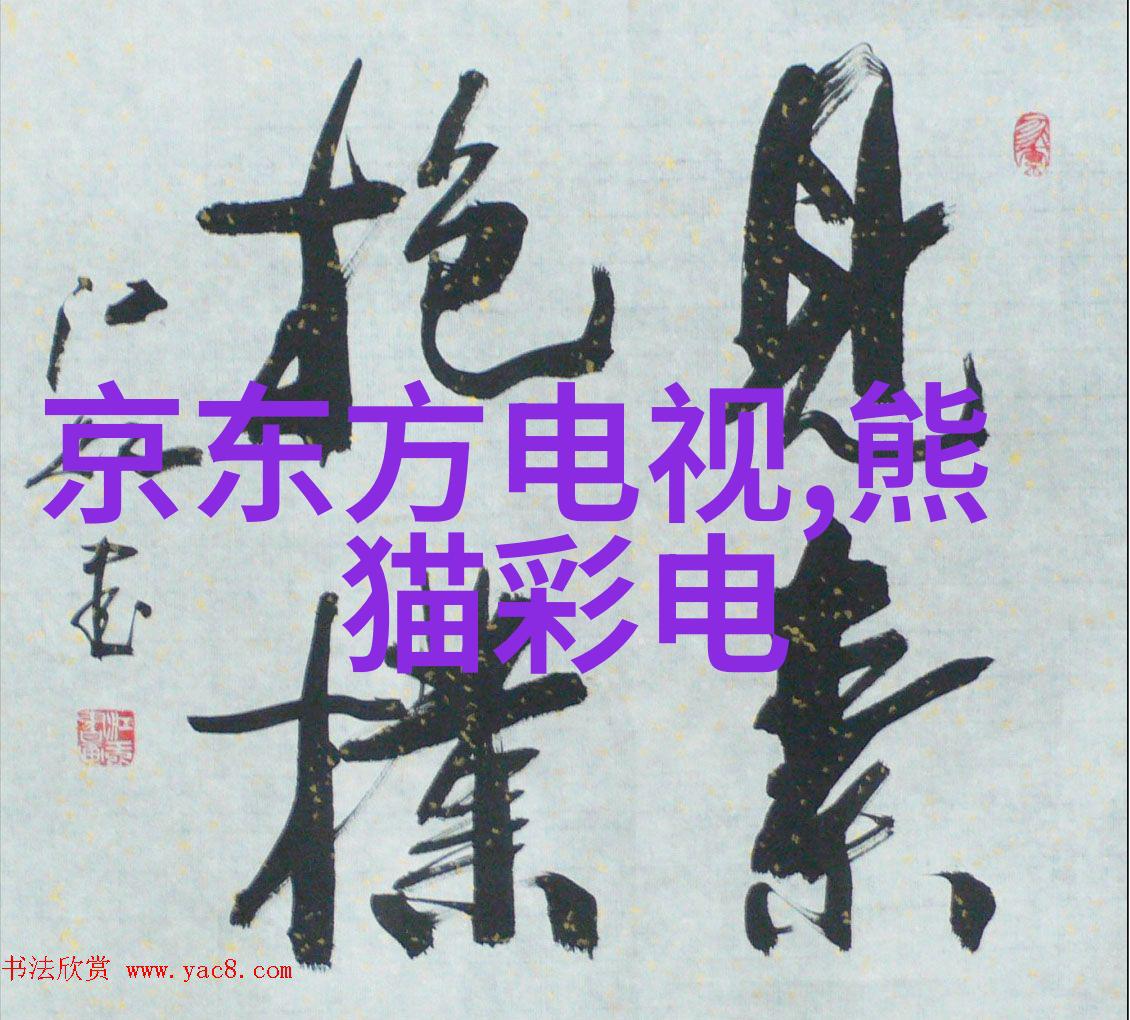 見素
抱樸
江然書
京东方电视,熊
猫彩电
书法欣赏 www.yac8.com